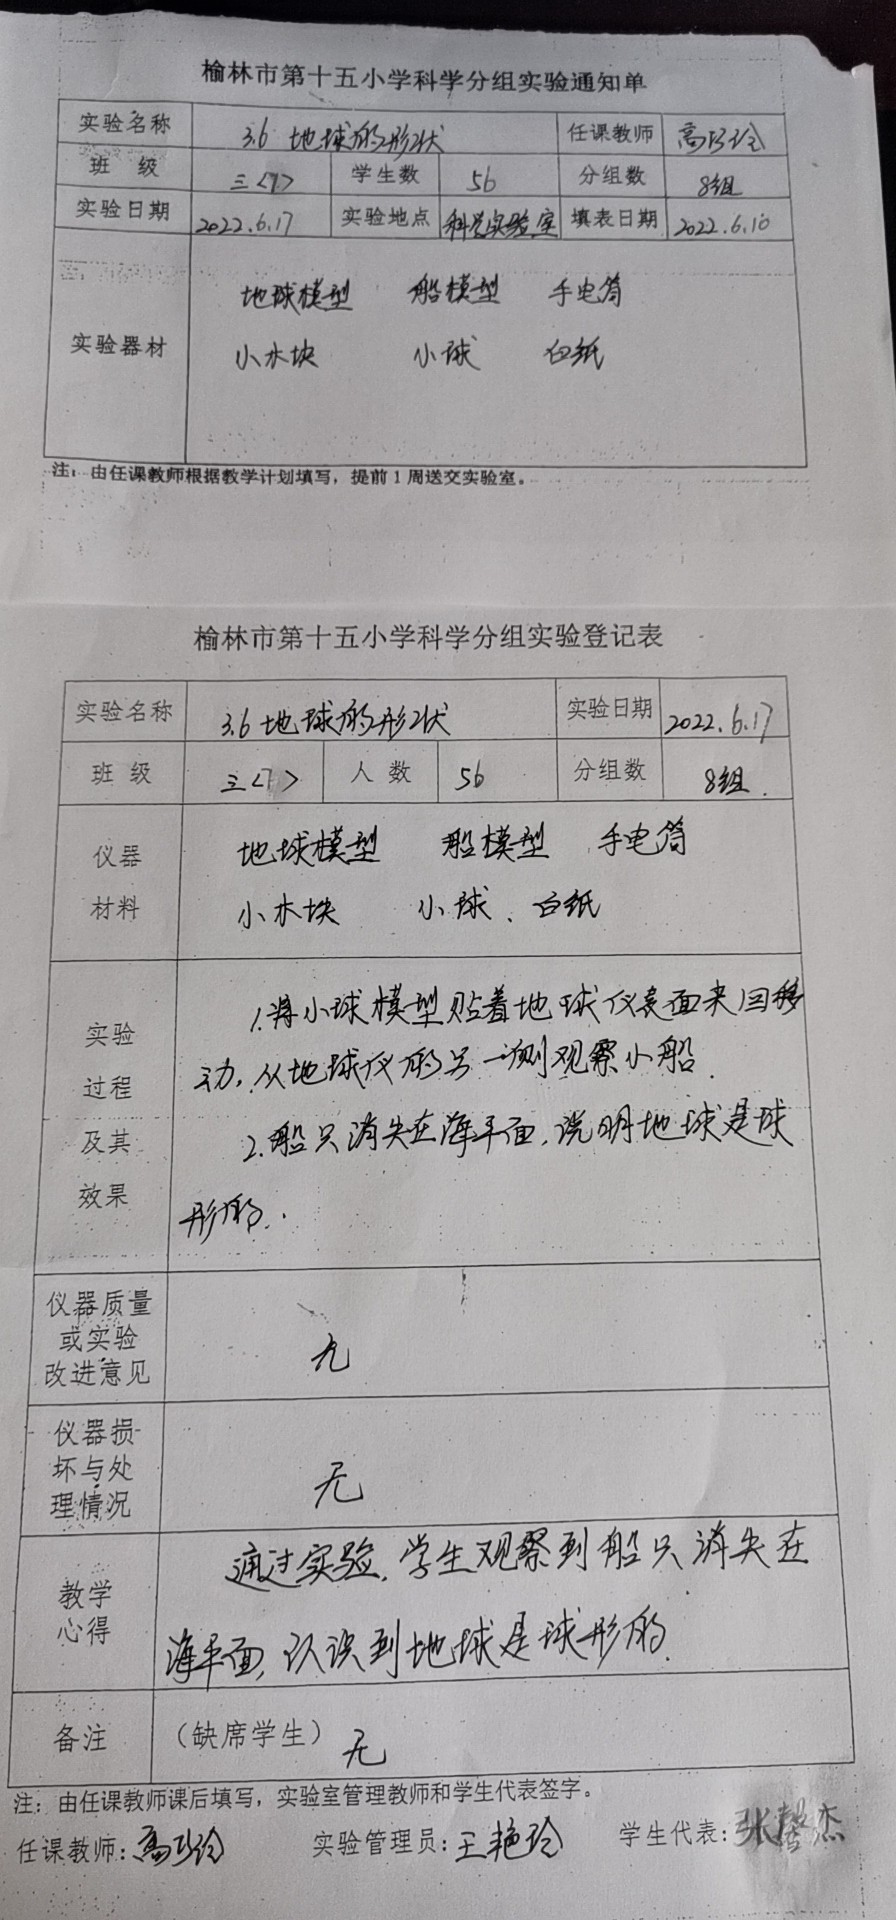 榆林市第十五小学科学分组实验通知单
实验名称 3.6 地球的形状 任课教师 高巧玲
班 级 三<7> 学生数 56 分组数 8组
实验日期 2022.6.17 实验地点 科学实验室 填表日期 2022.6.10
实验器材
地球模型 船模型 手电筒
小木块 小球 白纸
注:由任课教师根据教学计划填写，提前1周送交实验室。
榆林市第十五小学科学分组实验登记表
实验名称 3.6 地球的形状 实验日期 2022.6.17
班 级 三<7> 人 数 56 分组数 8组.
仪器
材料
地球模型 船模型 手电筒
小木块 小球、白纸
实验
过程
及其
效果
1.将小球模型贴着地球仪表面来回移
动，从地球仪的另一侧观察小船.
2.船只消失在海平面，说明地球是球
形的.
仪器质量
或实验
改进意见
无
仪器损
坏与处
理情况
无
教学
心得
通过实验，学生观察到船只消失在
海平面，认识到地球是球形的.
备注 (缺席学生) 无
注：由任课教师课后填写，实验室管理教师和学生代表签字。
任课教师:高巧玲 实验管理员:王艳玲 学生代表:张馨杰